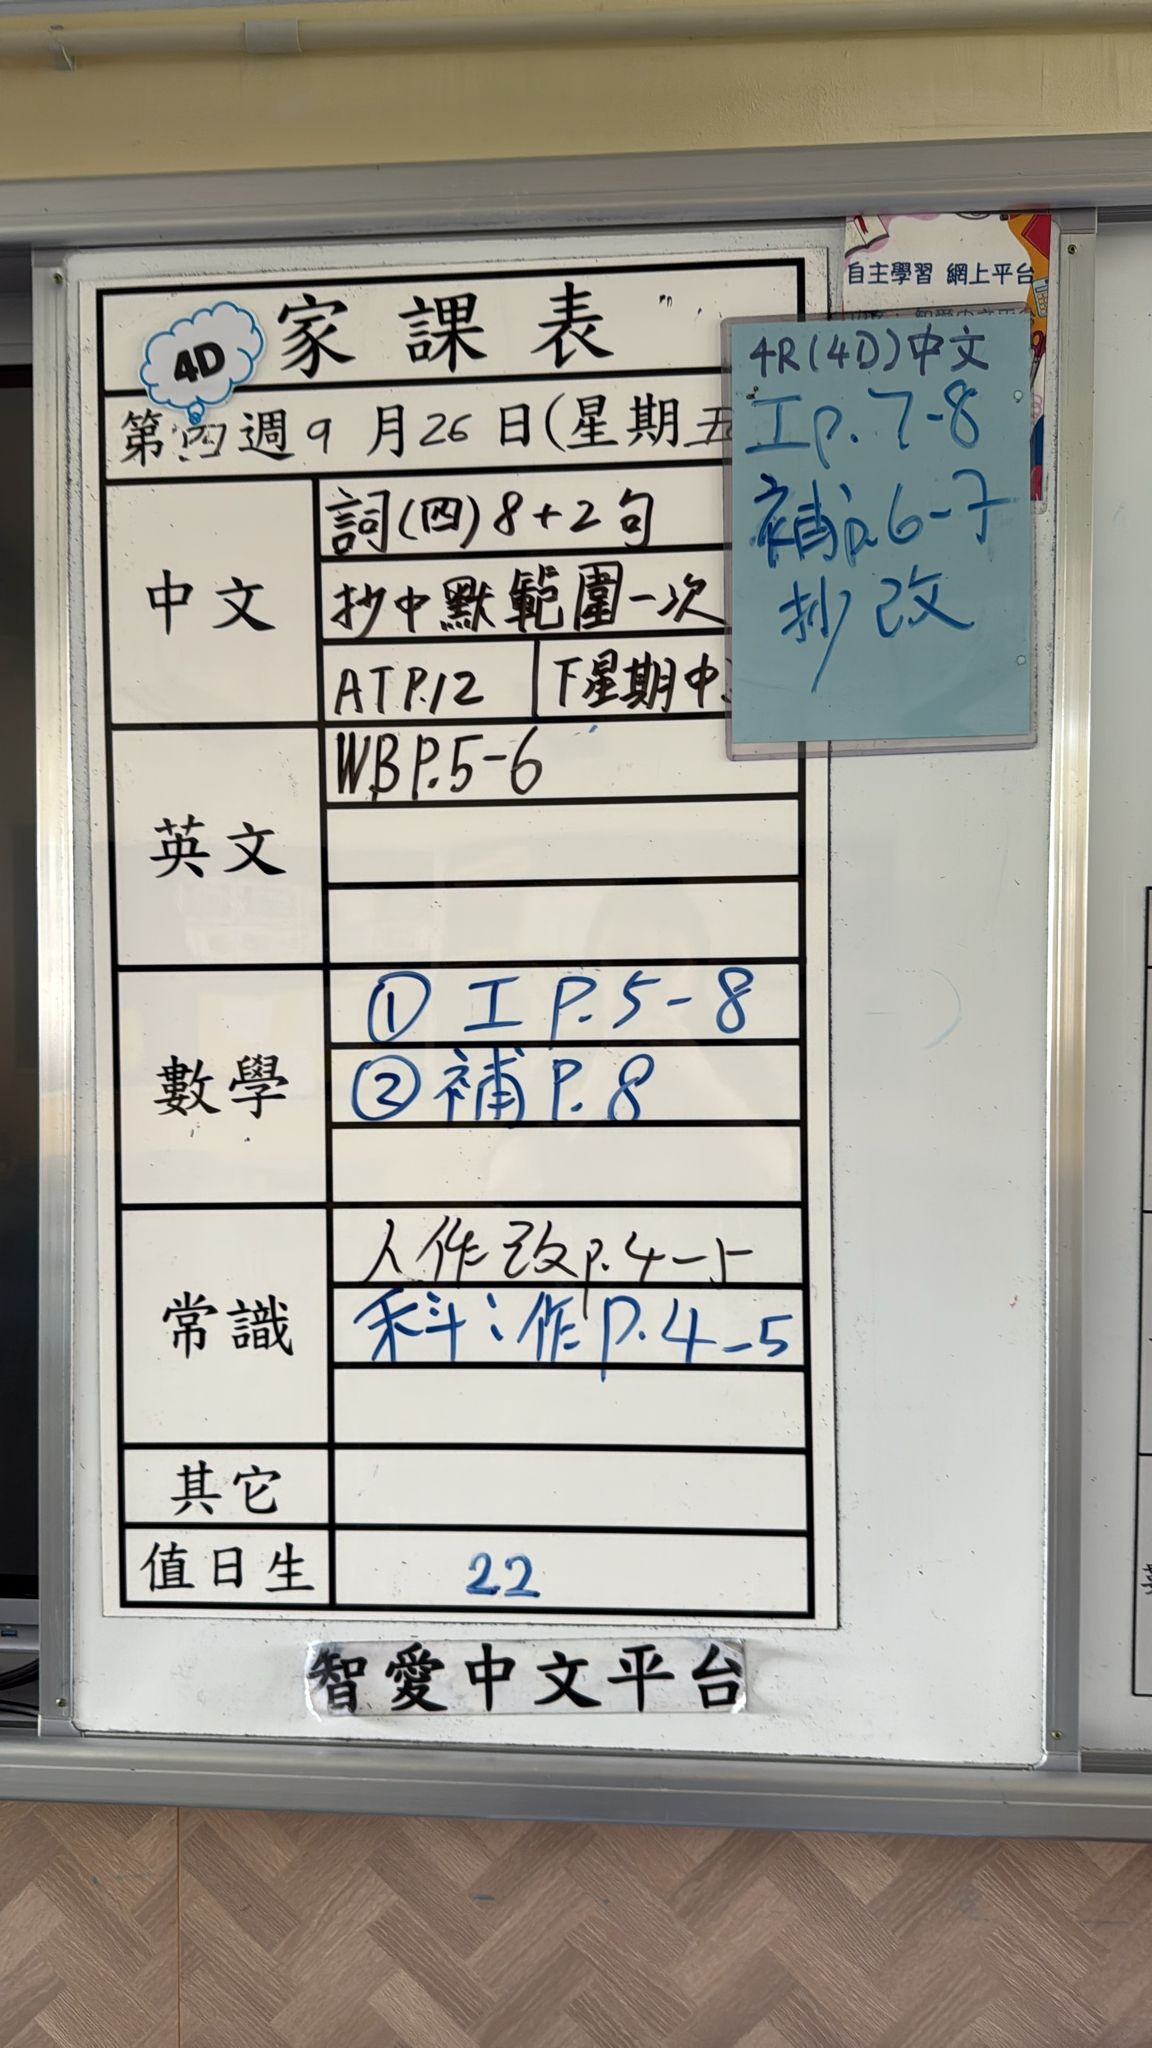 家課表
4D
第四週9月26日(星期五
中文
詞(四)8+2句
抄中默範圍一次
ATP.12
下星期中
英文
WBP.5-6
數學
① 工 P.5-8
② 補 P.8
常識
人作改p.4-5
科:作P.4-5
其它
值日生
22
智愛中文平台
自主學習 網上平台
4R(4D)中文
工p.7-8
補p.6-7
抄改